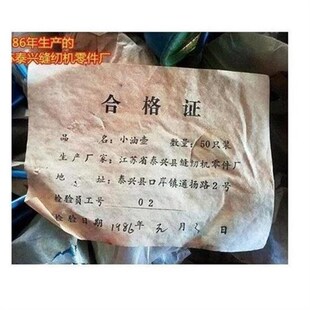 86年生产的
泰兴缝纫机零件厂
合格证
品名:小油壶 数量:50只装
生产厂家:江苏省泰兴县缝纫机零件厂
地址:泰兴县口岸镇通扬路2号
检验员工号 02
检验日期 1986年元月 日